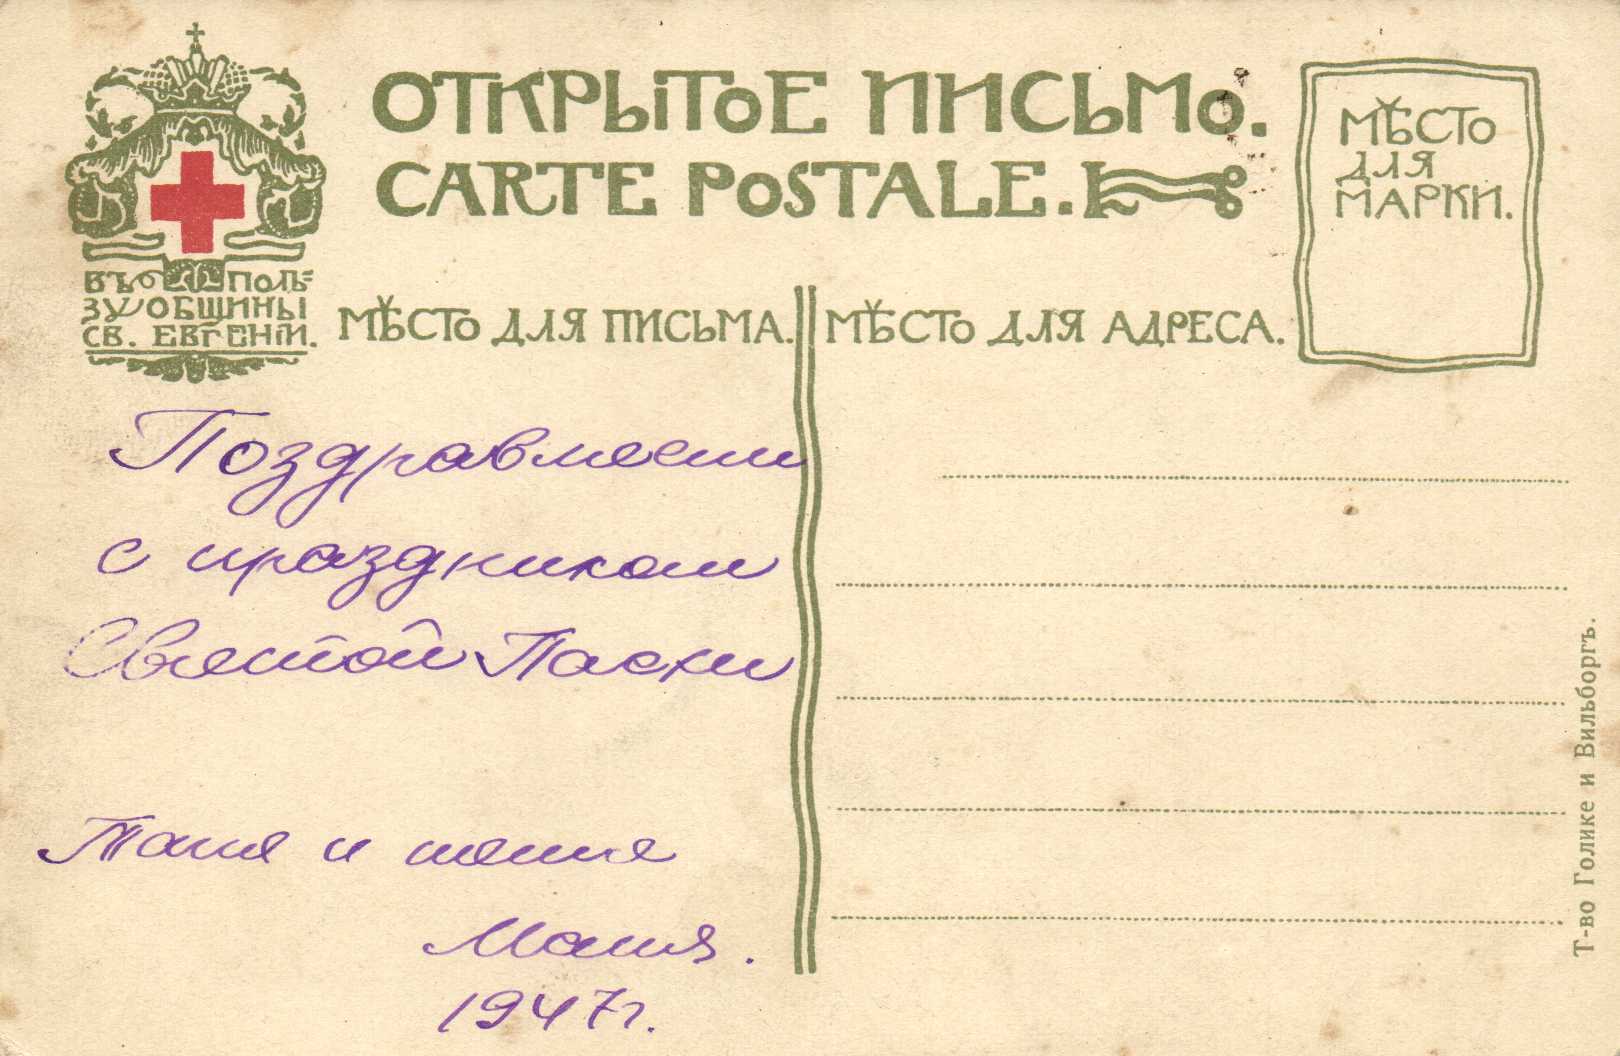 ОТКРЫТОЕ ПИСЬМО.
CARTE POSTALE.
МѢСТО
ДЛЯ
МАРКИ.
ВЪ ПОЛЬ-
ЗУ ОБЩИНЫ
СВ. ЕВГЕНІИ.
МѢСТО ДЛЯ ПИСЬМА.
МѢСТО ДЛЯ АДРЕСА.
Поздравляем
с праздником
Святой Пасхи
Таня и тетя
Маня.
1947г.
Т-во Голике и Вильборгъ.